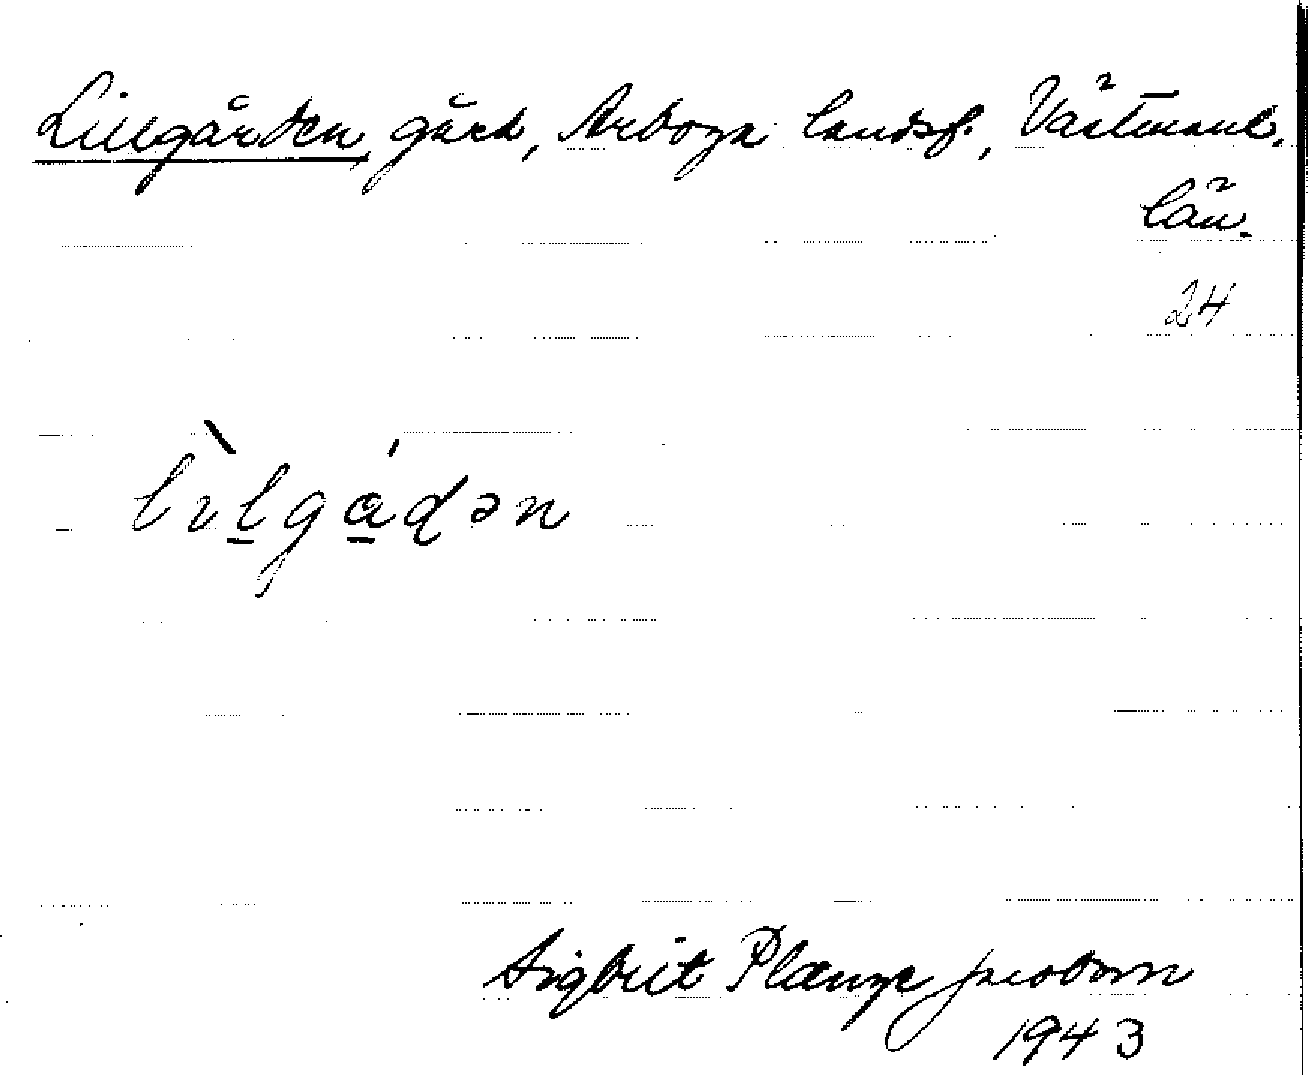 Lillgården, gård, Arboga landsf., Västmanl.
län.
24
lɪ̀lgádən
Sigbrit Plænge Jacobson
1943